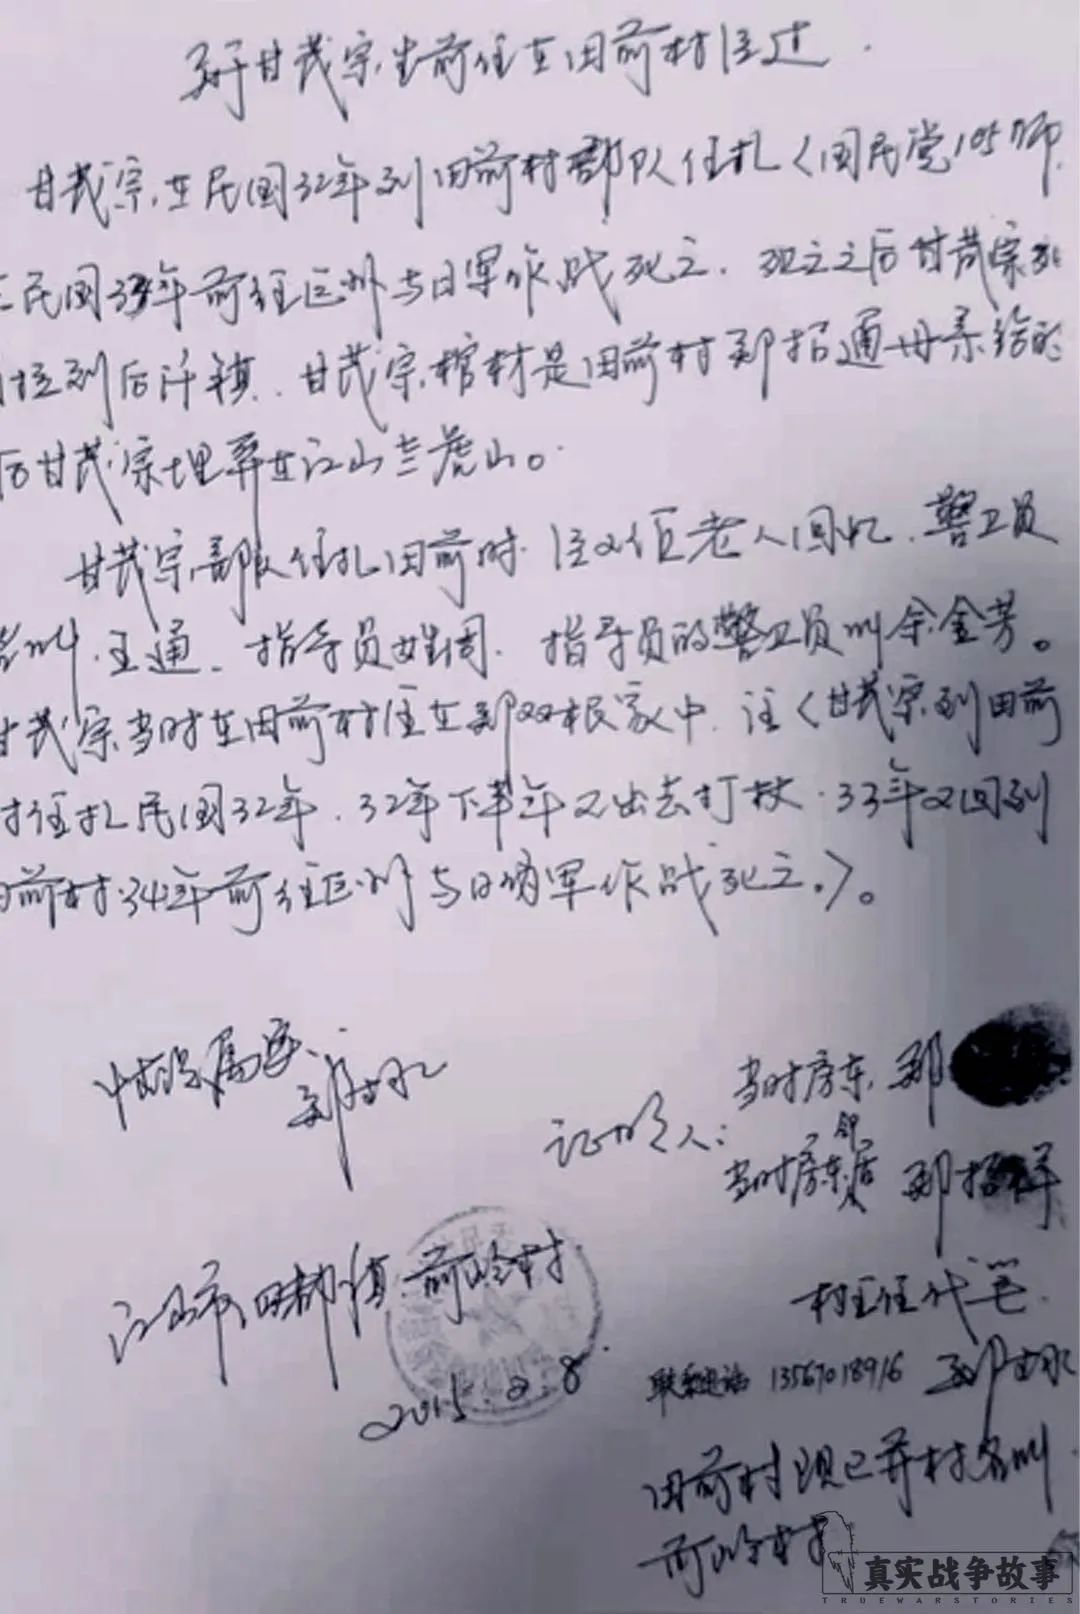 关于甘茂宗生前住在田前村经过.
甘茂宗.在民国32年到田前村部队住扎〈国民党105师.
民国34年前往巨州与日军作战死亡. 死亡之后甘茂宗
到后许镇. 甘茂宗棺材是田前村郑招通母亲给的
后甘茂宗埋葬在江山兰虎山。
甘茂宗部队住扎田前时. 经双位老人回忆. 警卫员
名叫.王通、指导员姓周. 指导员的警卫员叫余金芳。
甘茂宗当时在田前村住在郑双根家中. 注〈甘茂宗到田前
村住扎民国32年. 32年下半年又出去打杖. 33年又回到
田前村.34年前往巨州与日军作战死亡.〉。
情况属实.
郑古水
证明人:
当时房东. 郑
当时房东邻居 郑招祥
江山市四都镇.前岭村
2015.2.8.
村主任代笔.
联系电话 13567018916 郑古水
田前村现已并村名叫
前岭村
真实战争故事
TRUEWARSTORIES